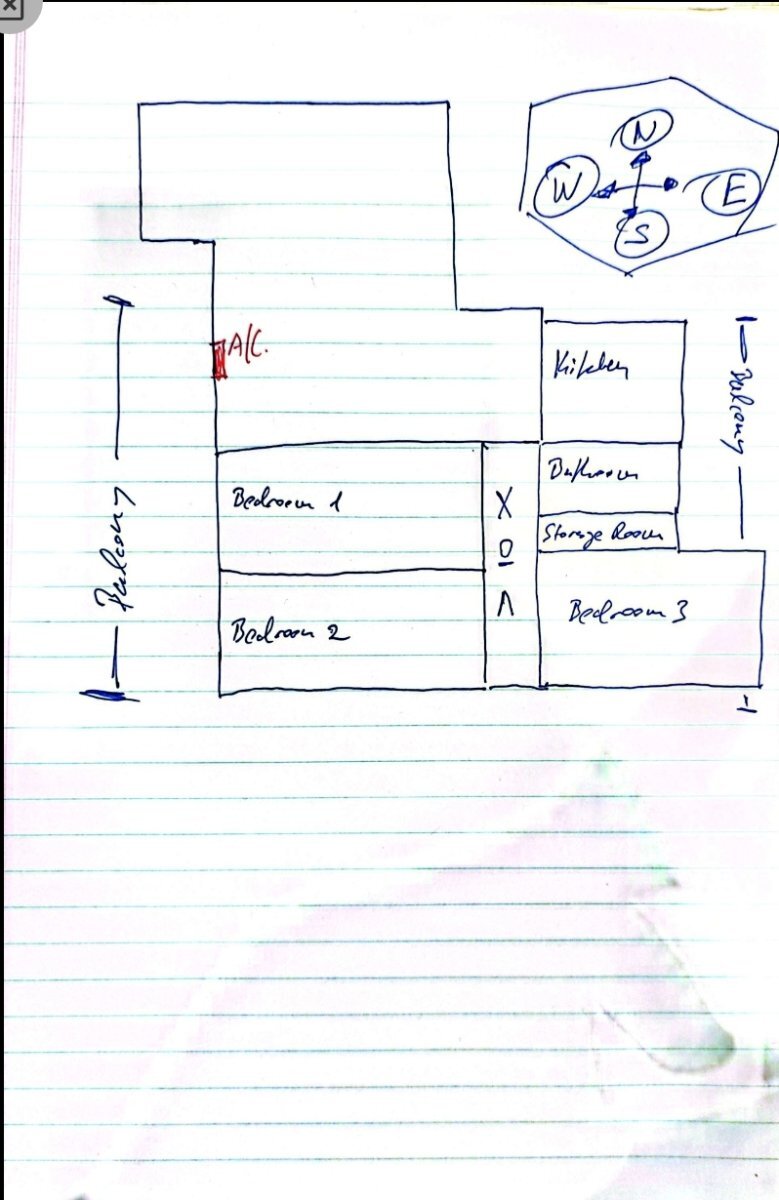 N
W
E
S
A/C.
Kitchen
Balcony
Bathroom
Bedroom 1
X
Storage Room
O
Balcony
Λ
Bedroom 3
Bedroom 2